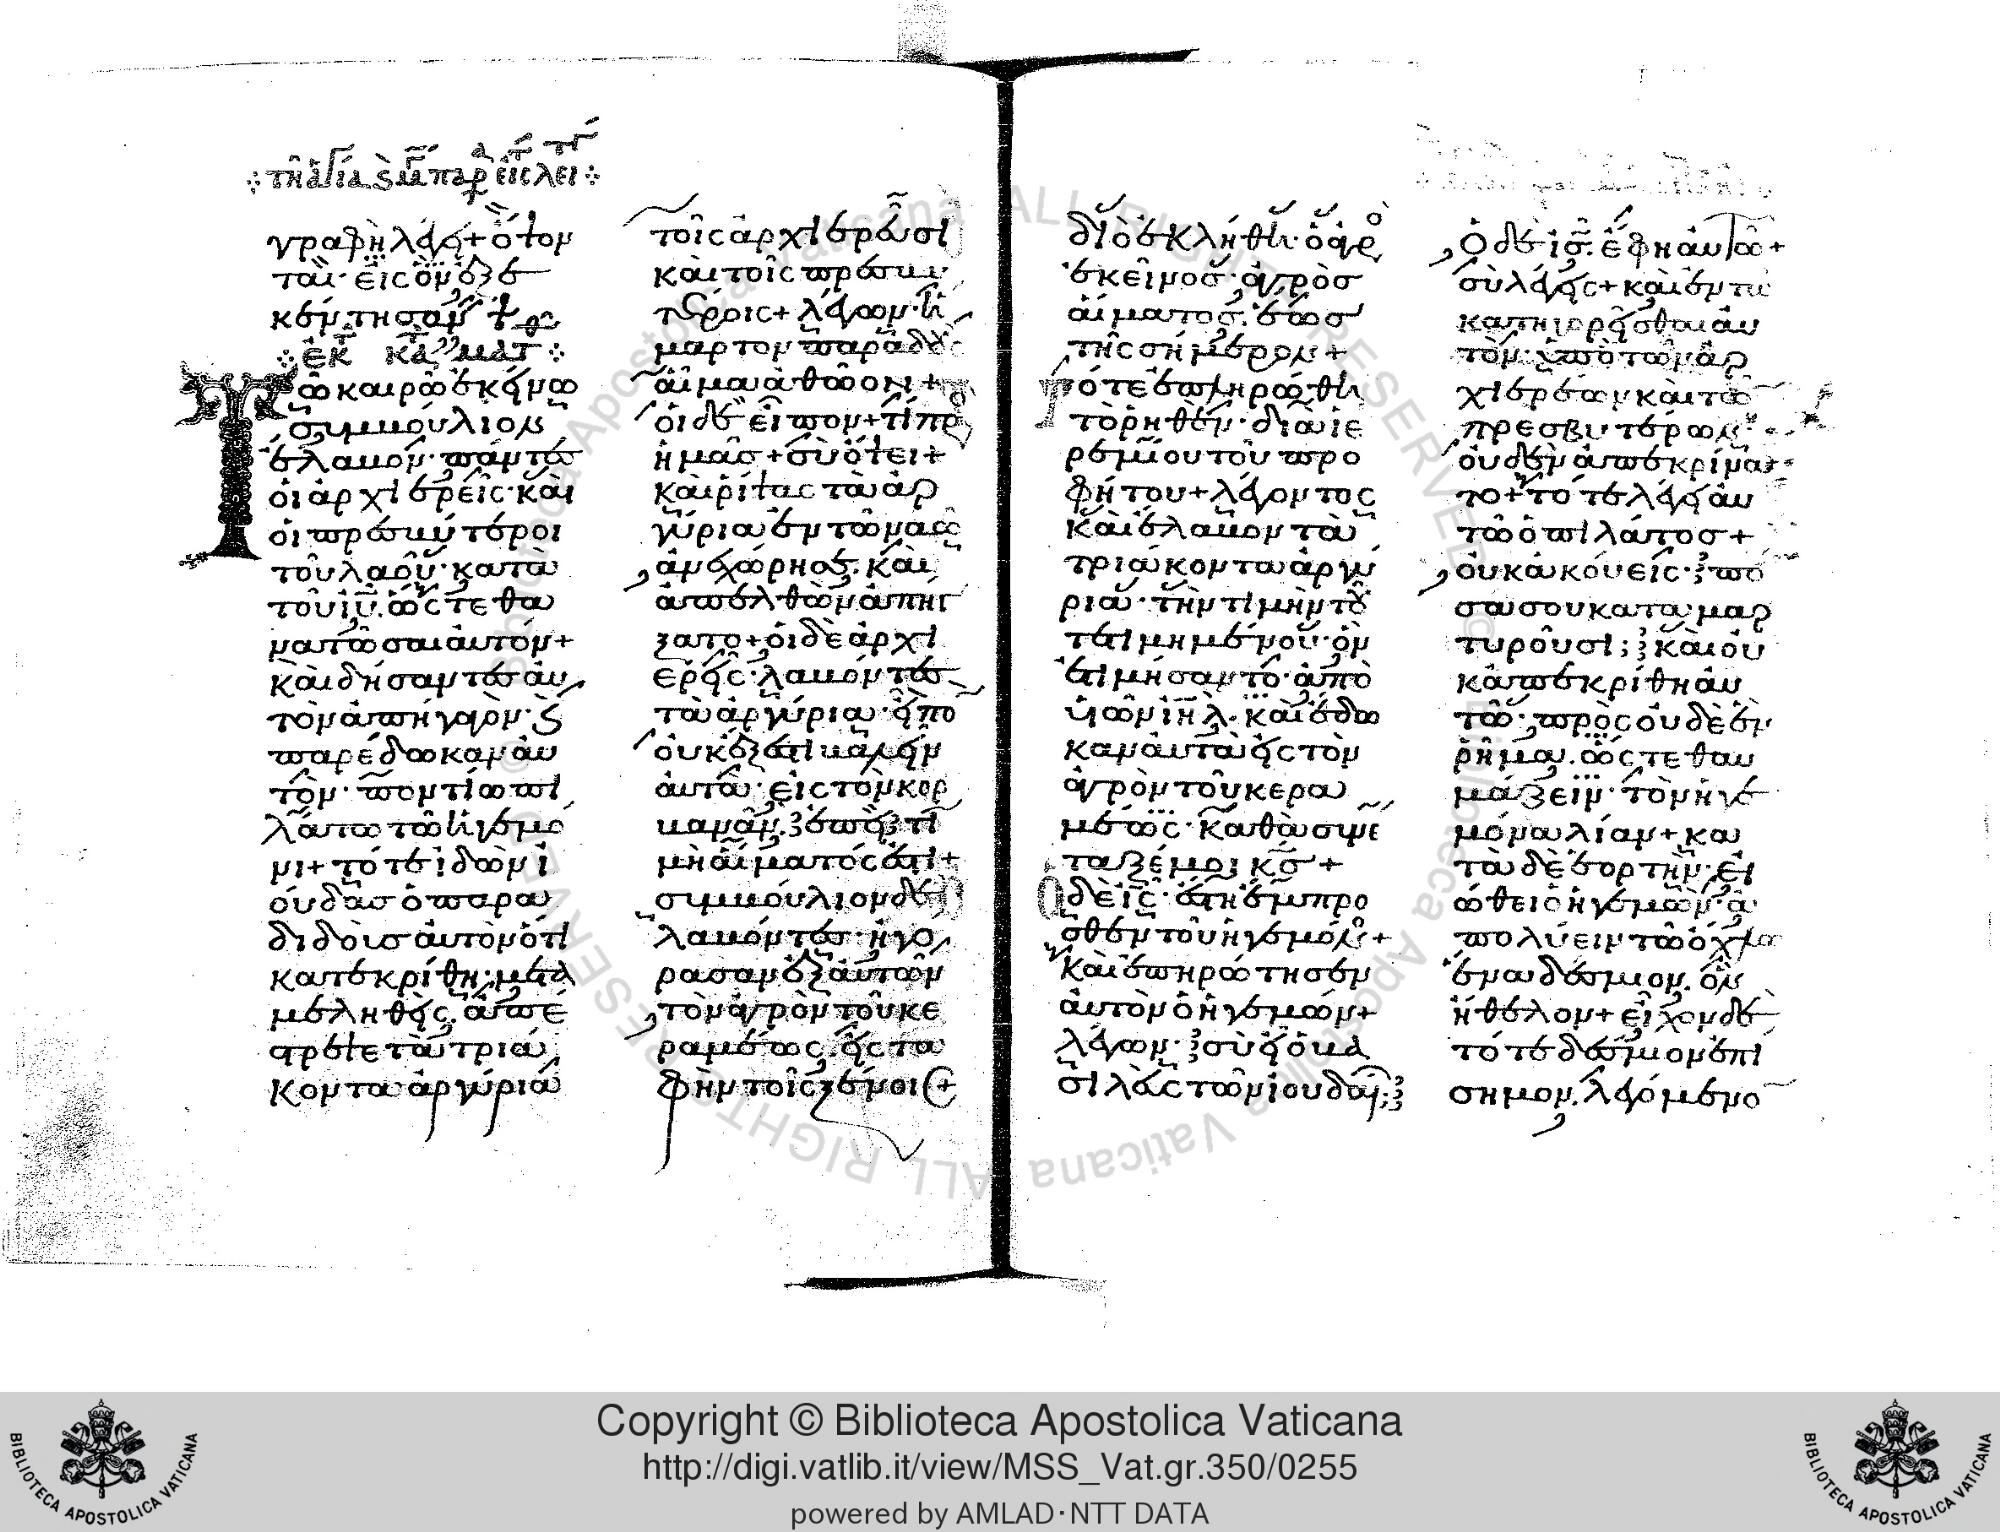 τῆ ἁγία παρ εἰς λει
γραφὴ λέγει + ὄψον
ται εἰς ὃν ἐξε
κέντησαν
ἐκ κατὰ ματθ
Τῶ καιρῶ ἐκείνω
συμβούλιον
ἔλαβον πάντες
οἱ ἀρχιερεῖς καὶ
οἱ πρεσβύτεροι
τοῦ λαοῦ κατὰ
τοῦ ἰῦ. ὥστε θα
νατῶσαι αὐτόν +
καὶ δήσαντες αὐ
τὸν ἀπήγαγον. καὶ
παρέδωκαν αὐ
τὸν ποντίω πι
λάτω τῶ ἡγεμό
νι + τότε ἰδὼν ἰ
ούδας ὁ παρα
διδοὺς αὐτὸν ὅτι
κατεκρίθη μετα
μεληθεὶς. ἀπέ
στρεψε τὰ τριά
κοντα ἀργύρια
τοῖς ἀρχιερεῦσι
καὶ τοῖς πρεσβυ
τέροις + λέγων. ἥ
μαρτον παραδοὺς
αἷμα ἀθῶον +
οἱ δὲ εἶπον + τί πρὸς
ἡμᾶς + σὺ ὄψει +
καὶ ρίψας τὰ ἀρ
γύρια ἐν τῶ ναῶ
ἀνεχώρησε. καὶ
ἀπελθὼν ἀπήγ
ξατο + οἱ δὲ ἀρχι
ερεῖς λαβόντες
τὰ ἀργύρια εἶπο
οὐκ ἔξεστι βαλεῖν
αὐτὰ εἰς τὸν κορ
βανᾶν. ἐπεὶ τι
μὴ αἵματός ἐστι +
συμβούλιον δὲ
λαβόντες ἠγό
ρασαν ἐξ αὐτῶν
τὸν ἀγρὸν τοῦ κε
ραμέως. εἰς τα
φὴν τοῖς ξένοις +
διὸ ἐκλήθη ὁ ἀγρὸ
ἐκεῖνος ἀγρὸς
αἵματος. ἕως
τῆς σήμερον +
Τότε ἐπληρώθη
τὸ ρηθὲν διὰ ἰε
ρεμίου τοῦ προ
φήτου + λέγοντος
καὶ ἔλαβον τὰ
τριάκοντα ἀργύ
ρια τὴν τιμὴν τοῦ
τετιμημένου ὃν
ἐτιμήσαντο ἀπὸ
υἱῶν ἰηλ. καὶ ἔδω
καν αὐτὰ εἰς τὸν
ἀγρὸν τοῦ κερα
μέως καθὰ συνέ
ταξέ μοι κς +
Ὁ δὲ ἰς ἔστη ἔμπρο
σθεν τοῦ ἡγεμόνος +
καὶ ἐπηρώτησεν
αὐτὸν ὁ ἡγεμών +
λέγων σὺ εἶ ὁ βα
σιλεὺς τῶν ἰουδαίων;
ὁ δὲ ἰς. ἔφη αὐτῶ +
σὺ λέγεις + καὶ ἐν τῶ
κατηγορεῖσθαι αὐ
τὸν ὑπὸ τῶν ἀρ
χιερέων καὶ τῶν
πρεσβυτέρων
οὐδὲν ἀπεκρίνα
το + τότε λέγει αὐ
τῶ ὁ πιλάτος +
οὐκ ἀκούεις πό
σα σου κατα μαρ
τυροῦσι; καὶ οὐ
κ ἀπεκρίθη αὐ
τῶ πρὸς οὐδὲ ἓν
ρῆμα. ὥστε θαυ
μάζειν τὸν ἡγε
μόνα λίαν + κα
τὰ δὲ ἑορτὴν εἰ
ώθει ὁ ἡγεμὼν ἀ
πολύειν τῶ ὄχλω
ἕνα δέσμιον. ὃν
ἤθελον + εἶχον δὲ
τότε δέσμιον ἐπί
σημον. λεγόμενο
Copyright © Biblioteca Apostolica Vaticana
http://digi.vatlib.it/view/MSS_Vat.gr.350/0255
powered by AMLAD·NTT DATA
BIBLIOTECA APOSTOLICA VATICANA
BIBLIOTECA APOSTOLICA VATICANA